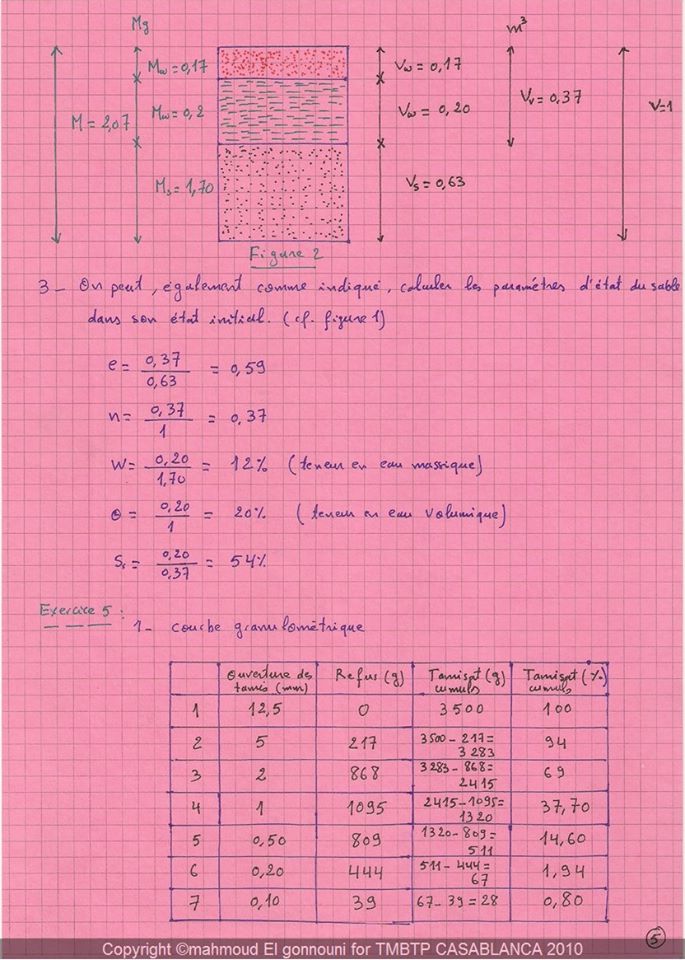 Mg
m³
M = 2,07
Mw = 0,17
Mw = 0,2
Ms = 1,70
Vw = 0,17
Vw = 0,20
Vs = 0,63
Vv = 0,37
V=1
Figure 2
3 - On peut, également comme indiqué, calculer les paramètres d'état du sable
dans son état initial. (cf. figure 1)
e = 0,37 / 0,63 = 0,59
n = 0,37 / 1 = 0,37
W = 0,20 / 1,70 = 12% (teneur en eau massique)
θ = 0,20 / 1 = 20% (teneur en eau volumique)
Sr = 0,20 / 0,37 = 54%
Exercice 5 :
1- courbe granulométrique
Ouverture des tamis (mm) Refus (g) Tamisat (g) cumuls Tamisat (%) cumuls
1 12,5 0 3500 100
2 5 217 3500 - 217 = 3283 94
3 2 868 3283 - 868 = 2415 69
4 1 1095 2415 - 1095 = 1320 37,70
5 0,50 809 1320 - 809 = 511 14,60
6 0,20 444 511 - 444 = 67 1,94
7 0,10 39 67 - 39 = 28 0,80
5
Copyright ©mahmoud El gonnouni for TMBTP CASABLANCA 2010